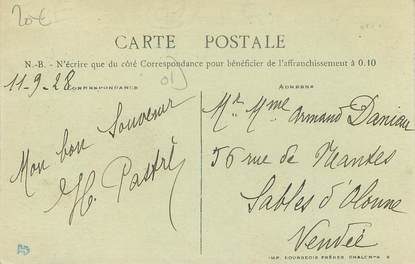 20€
CARTE POSTALE
N.-B. - N'écrire que du côté Correspondance pour bénéficier de l'affranchissement à 0.10
11-9-28
CORRESPONDANCE
Mon bon Souvenir
H. Pastré
ADRESSE
Mr Mme Armand Daniau
56 rue de Nantes
Sables d'Olonne
Vendée
IMP. BOURGEOIS FRÈRES, CHALON-s-S